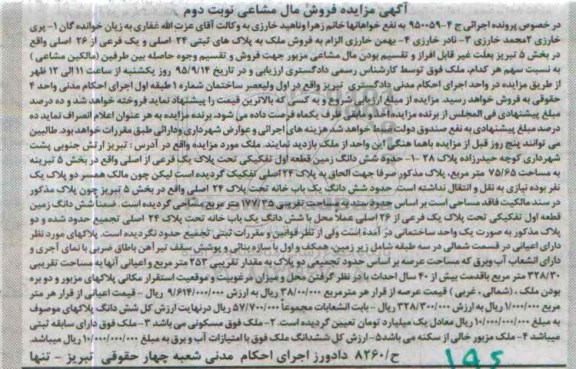 آگهی مزایده فروش مال مشاعی نوبت دوم
در خصوص پرونده اجرائی ج ۴-۹۵۰۰۵۹ به نفع خواهانها خانم زهرا و ناهید خارزی به وکالت آقای عزت الله غفاری به زیان خواندگان ۱- پری
خارزی ۲محمد خارزی ۳- نادر خارزی ۴- بهمن خارزی الزام به فروش ملک به پلاک های ثبتی ۲۴ اصلی و یک فرعی از ۲۶ اصلی واقع
در بخش ۵ تبریز بعلت غیر قابل افراز و تقسیم بودن مال مشاعی مزبور جهت فروش و تقسیم وجوه حاصله بین طرفین (مالکین مشاعی)
به نسبت سهم هر کدام، ملک فوق توسط کارشناس رسمی دادگستری ارزیابی و در تاریخ ۹۵/۹/۱۴ روز یکشنبه از ساعت ۱۱ الی ۱۲ ظهر
از طریق مزایده در واحد اجرای احکام مدنی دادگستری تبریز واقع در اول ولیعصر ساختمان شماره ۱ طبقه اول اجرای احکام مدنی واحد ۴
حقوقی به فروش خواهد رسید. مزایده از مبلغ ارزیابی شروع و به کسی که بالاترین قیمت را پیشنهاد نماید فروخته خواهد شد و ده درصد
مبلغ پیشنهادی فی المجلس از برنده مزایده اخذ و مابقی ظرف یکماه فرصت داده می شود، برنده مزایده به هر عنوان اعلام انصراف نماید ده
درصد مبلغ پیشنهادی به نفع صندوق دولت ضبط خواهد شد هزینه های اجرائی و عوارض شهرداری و دارائی طبق مقررات خواهد بود. طالبین
می توانند پنج روز قبل از مزایده با هماهنگی این واحد از ملک بازدید نمایند. ملک مورد مزایده واقع در آدرس: تبریز ارتش جنوبی پشت
شهرداری کوچه حیدرزاده پلاک ۲۸ ۱- حدود شش دانگ زمین قطعه اول تفکیکی تحت پلاک یک فرعی از اصلی واقع در بخش ۵ تبریز
به مساحت ۷۵/۶۵ متر مربع، پلاک مذکور صرفا جهت الحاق به پلاک ۲۴ اصلی تفکیک گردیده است لیکن چون مالک همسر دو پلاک یک
نفر بوده نیازی به نقل و انتقال نداشته است. حدود شش دانگ یک باب خانه تحت پلاک ۲۴ اصلی واقع در بخش ۵ تبریز چون پلاک مذکور
در سند مالکیت فاقد مساحی است بر اساس حدود سند به مساحت تقریبی ۱۷۷/۳۵ متر مربع مساحی گردیده است. ضمنا شش دانگ زمین
قطعه اول تفکیکی تحت پلاک یک فرعی از ۲۶ اصلی عملا محل با شش دانگ یک باب خانه تحت پلاک ۲۴ اصلی تجمیع حدود شده و دو
پلاک مذکور به صورت یک واحد ساختمانی در آمده است ولی از نظر قوانین و مقررات ثبتی تجمیع حدود نگردیده است. پلاکهای مورد نظر
دارای اعیانی در قسمت شمالی در سه طبقه شامل زیر زمین همکف و اول با سازه بنائی و پوشش سقف تیر آهن باطاق ضربی با نمای آجری و
دارای انشعاب آب و برق که مساحت عرصه بر اساس حدود تجمیعی دو پلاک به مقدار تقریبی ۲۵۳ متر مربع و اعیانی آنها به مساحت تقریبی
۳۲۸/۳۰ متر مربع با قدمت بیش از ۴۰ سال احداث با در نظر گرفتن محل و میزان مرغوبیت و موقعیت استقرار مکانی پلاکهای مزبور و دو بره
بودن ملک، (شمالی، غربی) قیمت عرصه از قرار هر متر مربع ۳۸/۰۰۰/۰۰۰ ریال به ارزش ۹/۶۱۴/۰۰۰/۰۰۰ ریال - قیمت اعیانی از قرار هر متر
مربع ۱/۰۰۰/۰۰۰ ریال به ارزش ۳۲۸/۳۰۰/۰۰۰ ریال - بابت انشعابات مجموعاً ۵۷/۷۰۰/۰۰۰ ریال در نهایت ارزش کل شش دانگ پلاکهای موصوف
به مبلغ ۱۰/۰۰۰/۰۰۰/۰۰۰ ریال معادل یک میلیارد تومان تعیین گردیده است. ۲- ملک فوق مسکونی می باشد ۳- ملک فوق دارای سابقه ثبتی
میباشد ۴- ملک مزبور خالی از سکنه می باشد ۵- ارزش کل ششدانگ ملک فوق با امتیازات آب و برق به مبلغ ۱۰/۰۰۰/۰۰۰/۰۰۰ ریال میباشد.
ح/۸۲۶۰ دادورز اجرای احکام مدنی شعبه چهار حقوقی تبریز - تنها
۱۹۶